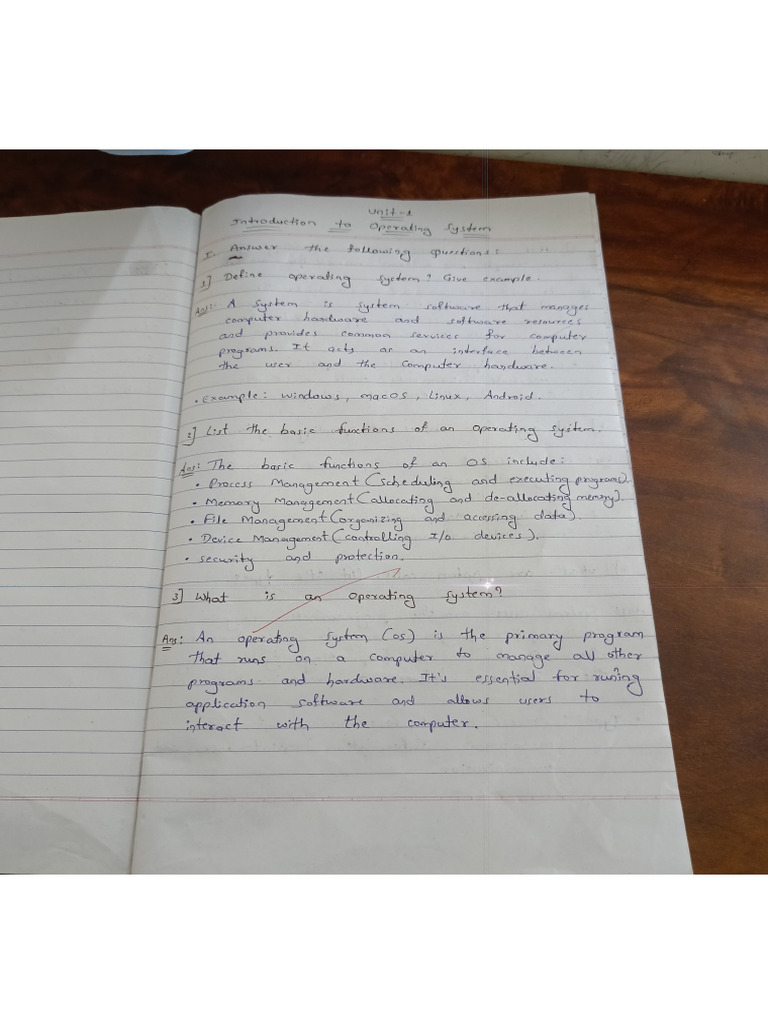 Unit-1
Introduction to Operating System
I. Answer the following questions:
1] Define operating system? Give example.
Ans:- A system is system software that manages
computer hardware and software resources
and provides common services for computer
programs. It acts as an interface between
the user and the computer hardware.
• Example: windows, macOS, Linux, Android.
2] List the basic functions of an operating system.
Ans: The basic functions of an OS include:
• Process Management (scheduling and executing programs).
• Memory Management (allocating and de-allocating memory).
• File Management (organizing and accessing data).
• Device Management (controlling I/o devices).
• security and protection.
3] What is an operating system?
Ans: An operating system (os) is the primary program
that runs on a computer to manage all other
programs and hardware. It's essential for runing
application software and allows users to
interact with the computer.